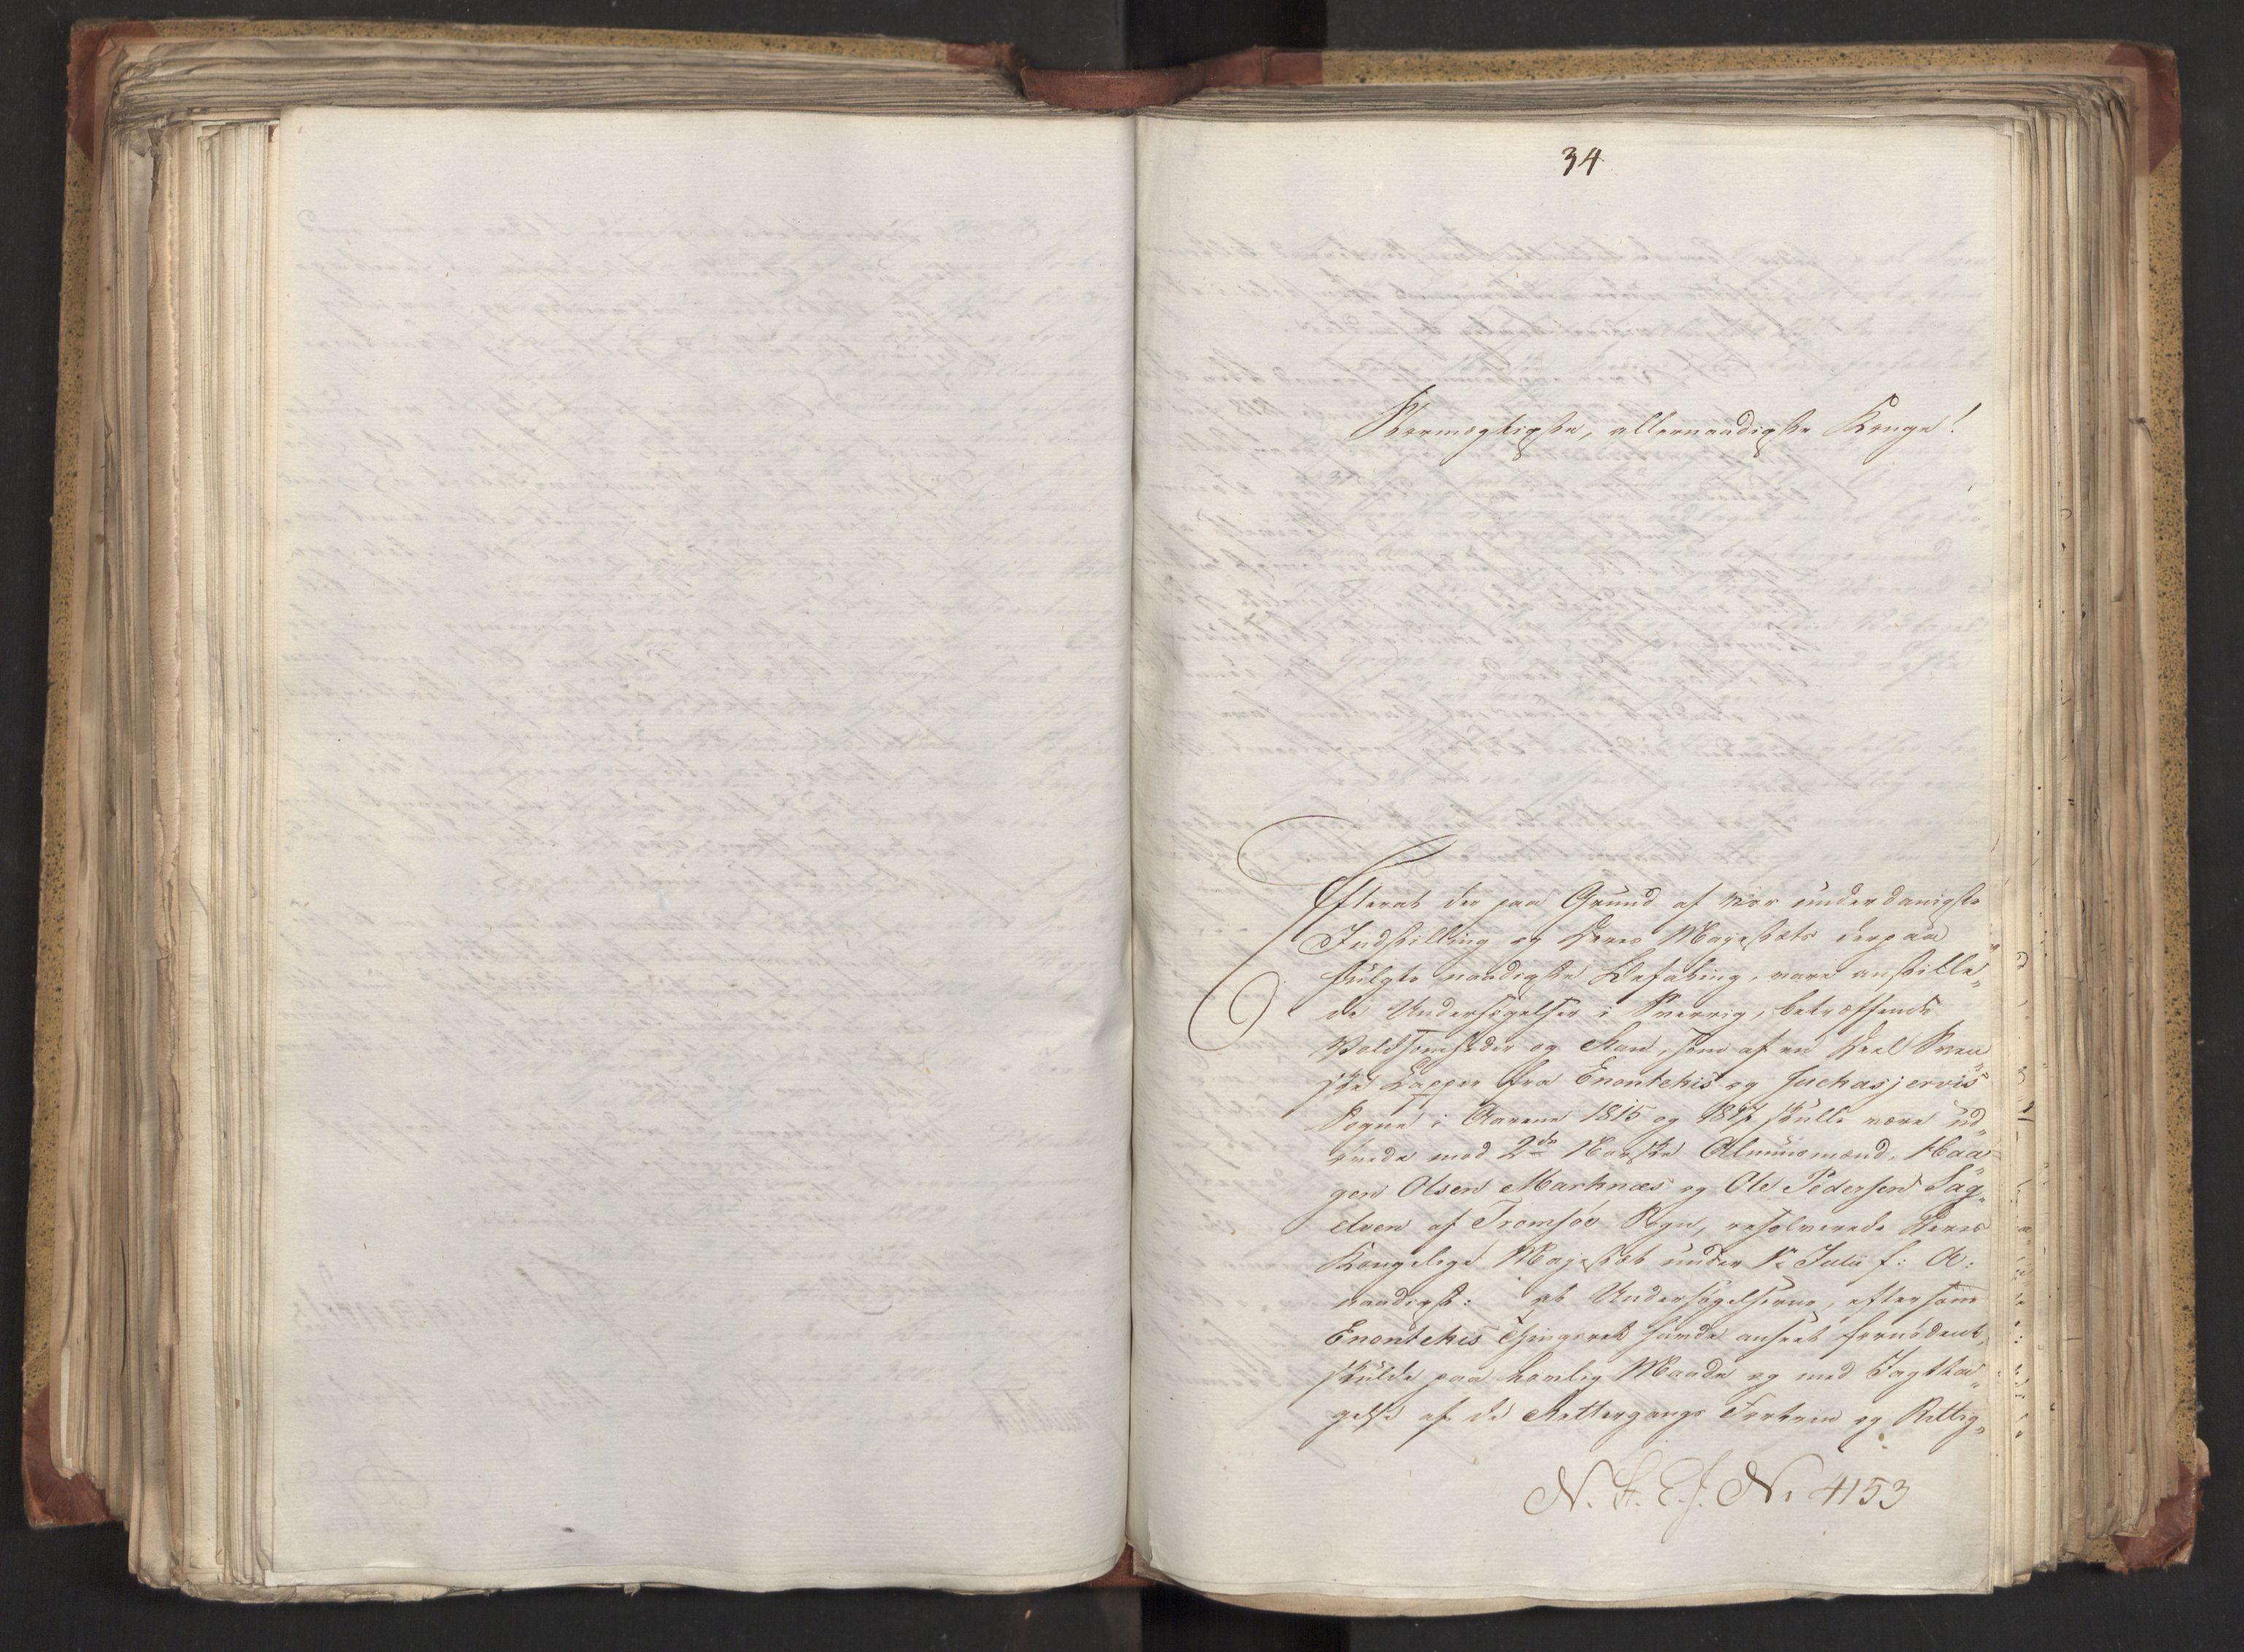 34
Stormægtigste, allernaadigste Konge!
Efterat der paa Grund af vor underdanigste
Indstilling og Deres Majestæts derpaa
fulgte naadigste Befaling, vare anstille„
de Undersøgelser i Sverrig, betræffende
Voldsomheder og Ran, som af en Deel Sven„
ske Lapper fra Enontekis og Juckasjervis
Sogne i Aarene 1815 og 1817 skulle være ud„
øvede mod 2de Norske Almuesmænd, Haa„
gen Olsen Marknæs og Ole Pedersen Sag„
elven af Tromsøe Sogn, resolverede Deres
Kongelige Majestæt under Julii f: A:
naadigst: at Undersøgelserne, eftersom
Enontekis Thingsret havde anseet fornødent,
skulde paa lovlig Maade og med Iagtta„
gelse af de Rettergangs Former og Rettig„
N. St. E. J. No 4153